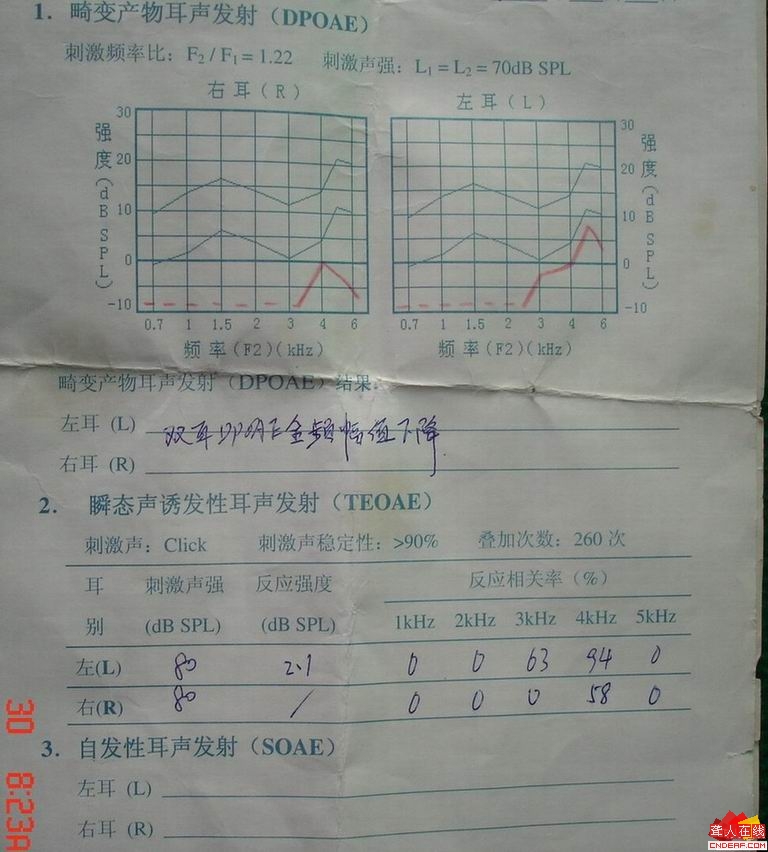 1. 畸变产物耳声发射（DPOAE）
刺激频率比：F2 / F1 = 1.22 刺激声强：L1 = L2 = 70dB SPL
右耳（R） 左耳（L）
强度（dB SPL）
30
20
10
0
-10
0.7 1 1.5 2 3 4 6
频率(F2)(kHz)
强度（dB SPL）
30
20
10
0
-10
0.7 1 1.5 2 3 4 6
频率(F2)(kHz)
畸变产物耳声发射（DPOAE）结果：
左耳 (L) 双耳DPOAE全频幅值下降
右耳 (R)
2. 瞬态声诱发性耳声发射（TEOAE）
刺激声：Click 刺激声稳定性：>90% 叠加次数：260 次
耳别 刺激声强 (dB SPL) 反应强度 (dB SPL) 反应相关率（%）
1kHz 2kHz 3kHz 4kHz 5kHz
左(L) 80 2.1 0 0 63 94 0
右(R) 80 / 0 0 0 58 0
3. 自发性耳声发射（SOAE）
左耳 (L)
右耳 (R)
30 8:23A
聋人在线
CNDEAF.COM